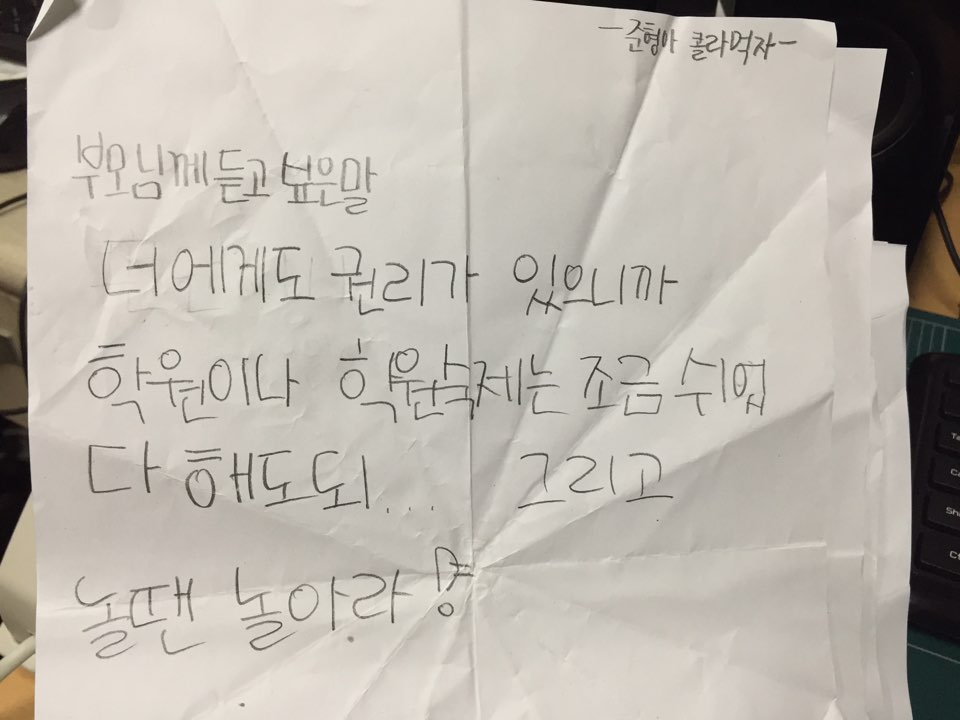 -준형아 콜라먹자-
부모님께 듣고 싶은말
너에게도 권리가 있으니까
학원이나 학원숙제는 조금 쉬업
다 해도되... 그리고
놀땐 놀아라